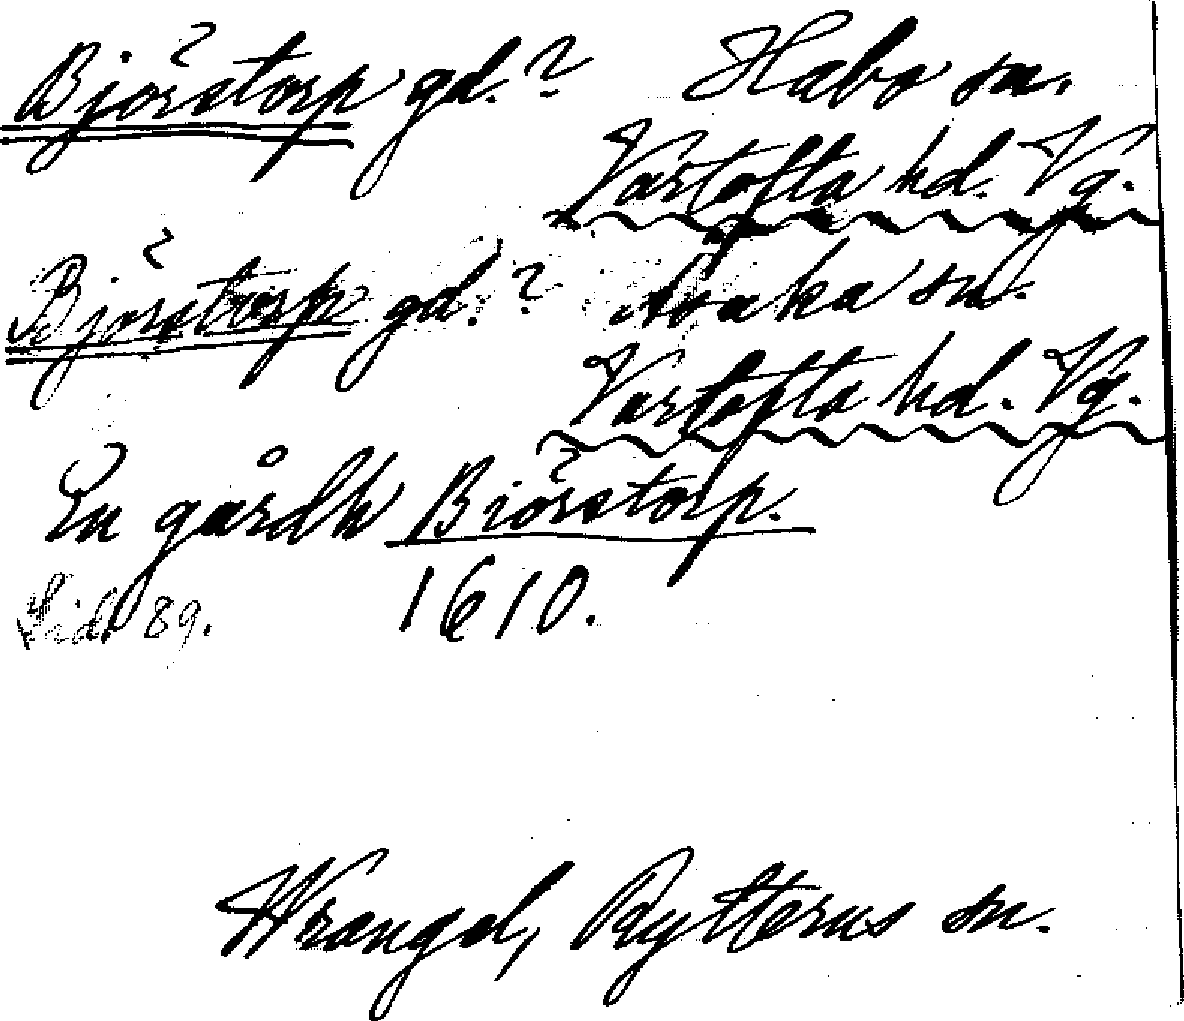 Björstorp gd. ? Habo sn.
Vartofta hd. Vg.
Björstorp gd. ? Acaka sn.
Vartofta hd. Vg.
En gårdh Biörstorp.
Sid. 89. 1610.
Wrangel, Rytterns sn.